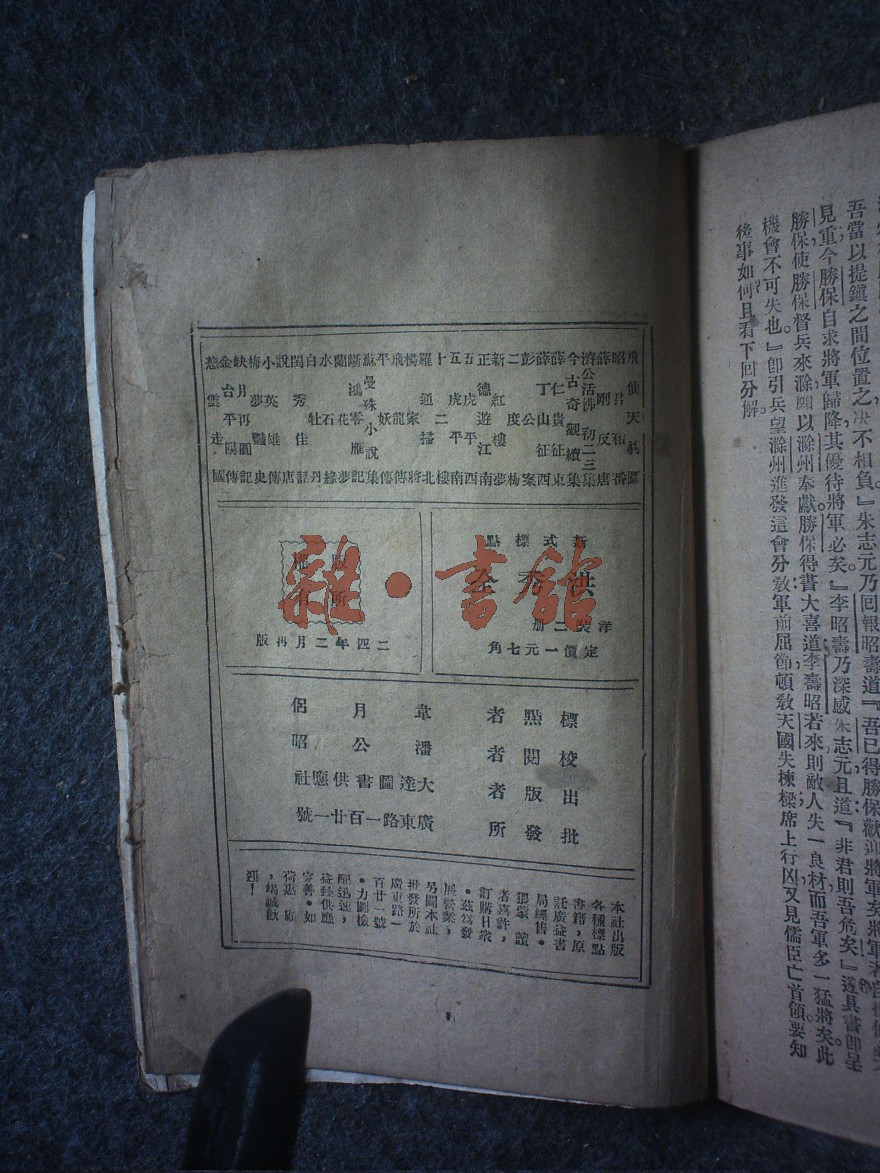 吾當以提鎮之間位置之,決不相負』朱志元乃回報昭壽道『吾已得勝保歡洽將軍矣將軍
見重今勝保自求將軍歸降其優待將軍必矣』李昭壽乃深感朱志元且道『非君則吾危矣』遂具書卽呈
勝保使勝保督兵來滁願以滁州奉獻勝保得書大喜道李壽昭若來則敵人失一良材而吾軍多一猛將矣此
機會不可失也』卽引兵望滁州進發這會分敎軍前屈節頓敎天國失棟樑席上行凶又見儒臣亡首領要知
後事如何且看下回分解。
飛仙天豹圖
昭君和番
薛剛反唐
濟公活佛初二三集
今古奇觀續集
薛仁貴征東
薛丁山征西
彭公案
二度梅
新紅樓夢
正德遊江南
五虎平西
五虎平南
十二樓
羅通掃北
楊家將
飛龍傳
平妖傳
蘇曼殊小說集
斷鴻零雁記
蘭花夢
水石緣
白牡丹
閨秀佳話
說唐
小英雄傳
梅夢豔史
缺月再圓記
金台平陽傳
慈雲走國
新式標點
洪秀全
洋裝二册
定價一元七角
版權
所有
二四年二月再版
雜·書館
標點者 韋月侶
校閱者 潘公昭
出版者 大達圖書供應社
批發所 廣東路一百廿一號
本社出版
各種標點
書籍,原
託廣益書
局經售。
猥蒙讀
者嘉許,
訂購日衆
。茲爲發
展營業,
另闢本社
批發所於
廣東路一
百廿一號
。力圖檢
配迅速,
益臻供應
完善。如
荷惠顧
,竭誠歡
迎!